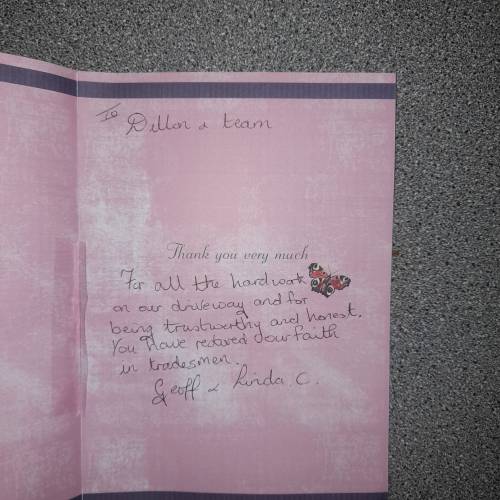 To
Dillon & team
Thank you very much
For all the hardwork
on our driveway and for
being trustworthy and honest.
You have restored our faith
in tradesmen.
Geoff & Linda C.